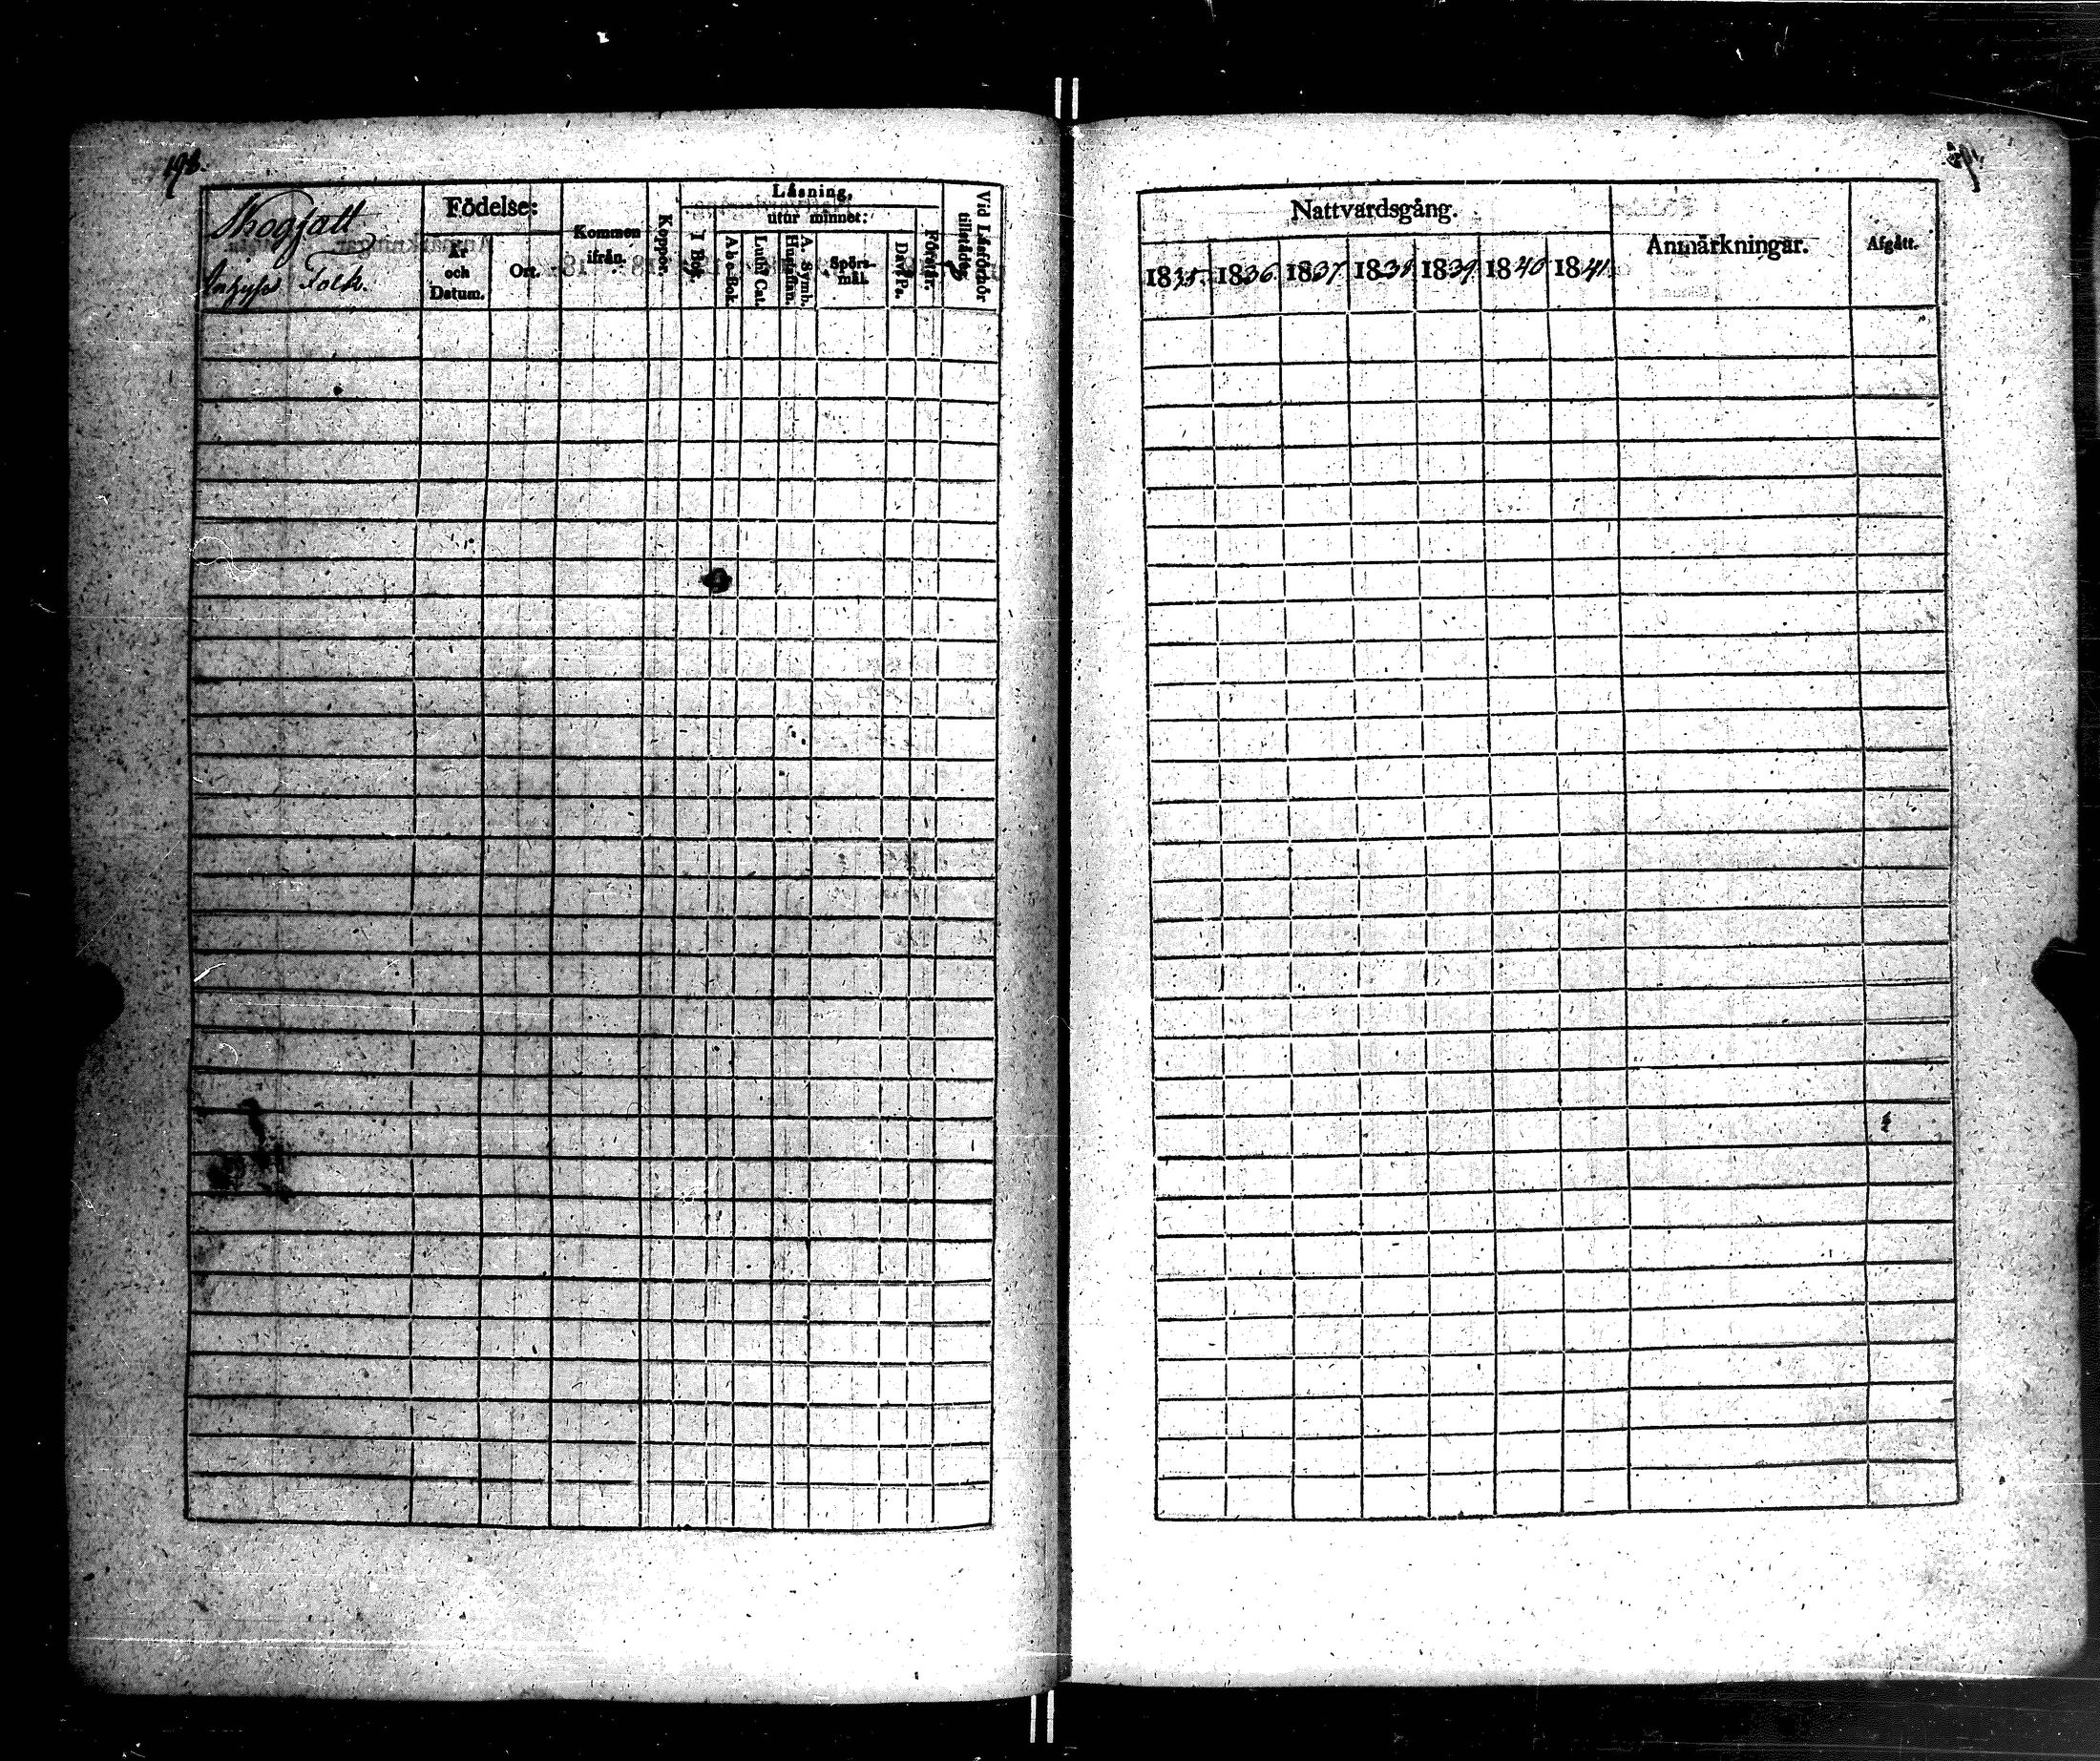 198.
Skogsatt
Inhyses Folk.
Födelse:
År och Datum.
Ort.
Kommen ifrån.
Koppor.
Läsning.
I Bok.
utur minnet:
Abc-Bok.
Luthr Cat.
A. Symb. Hustaflan.
Spörsmål.
Dav. Ps.
Förstår.
Vid Läsförhör tillstädes
Nattvardsgång.
1835. 1836. 1837 1838 1839 1840 1841
Anmärkningar.
Afgått.